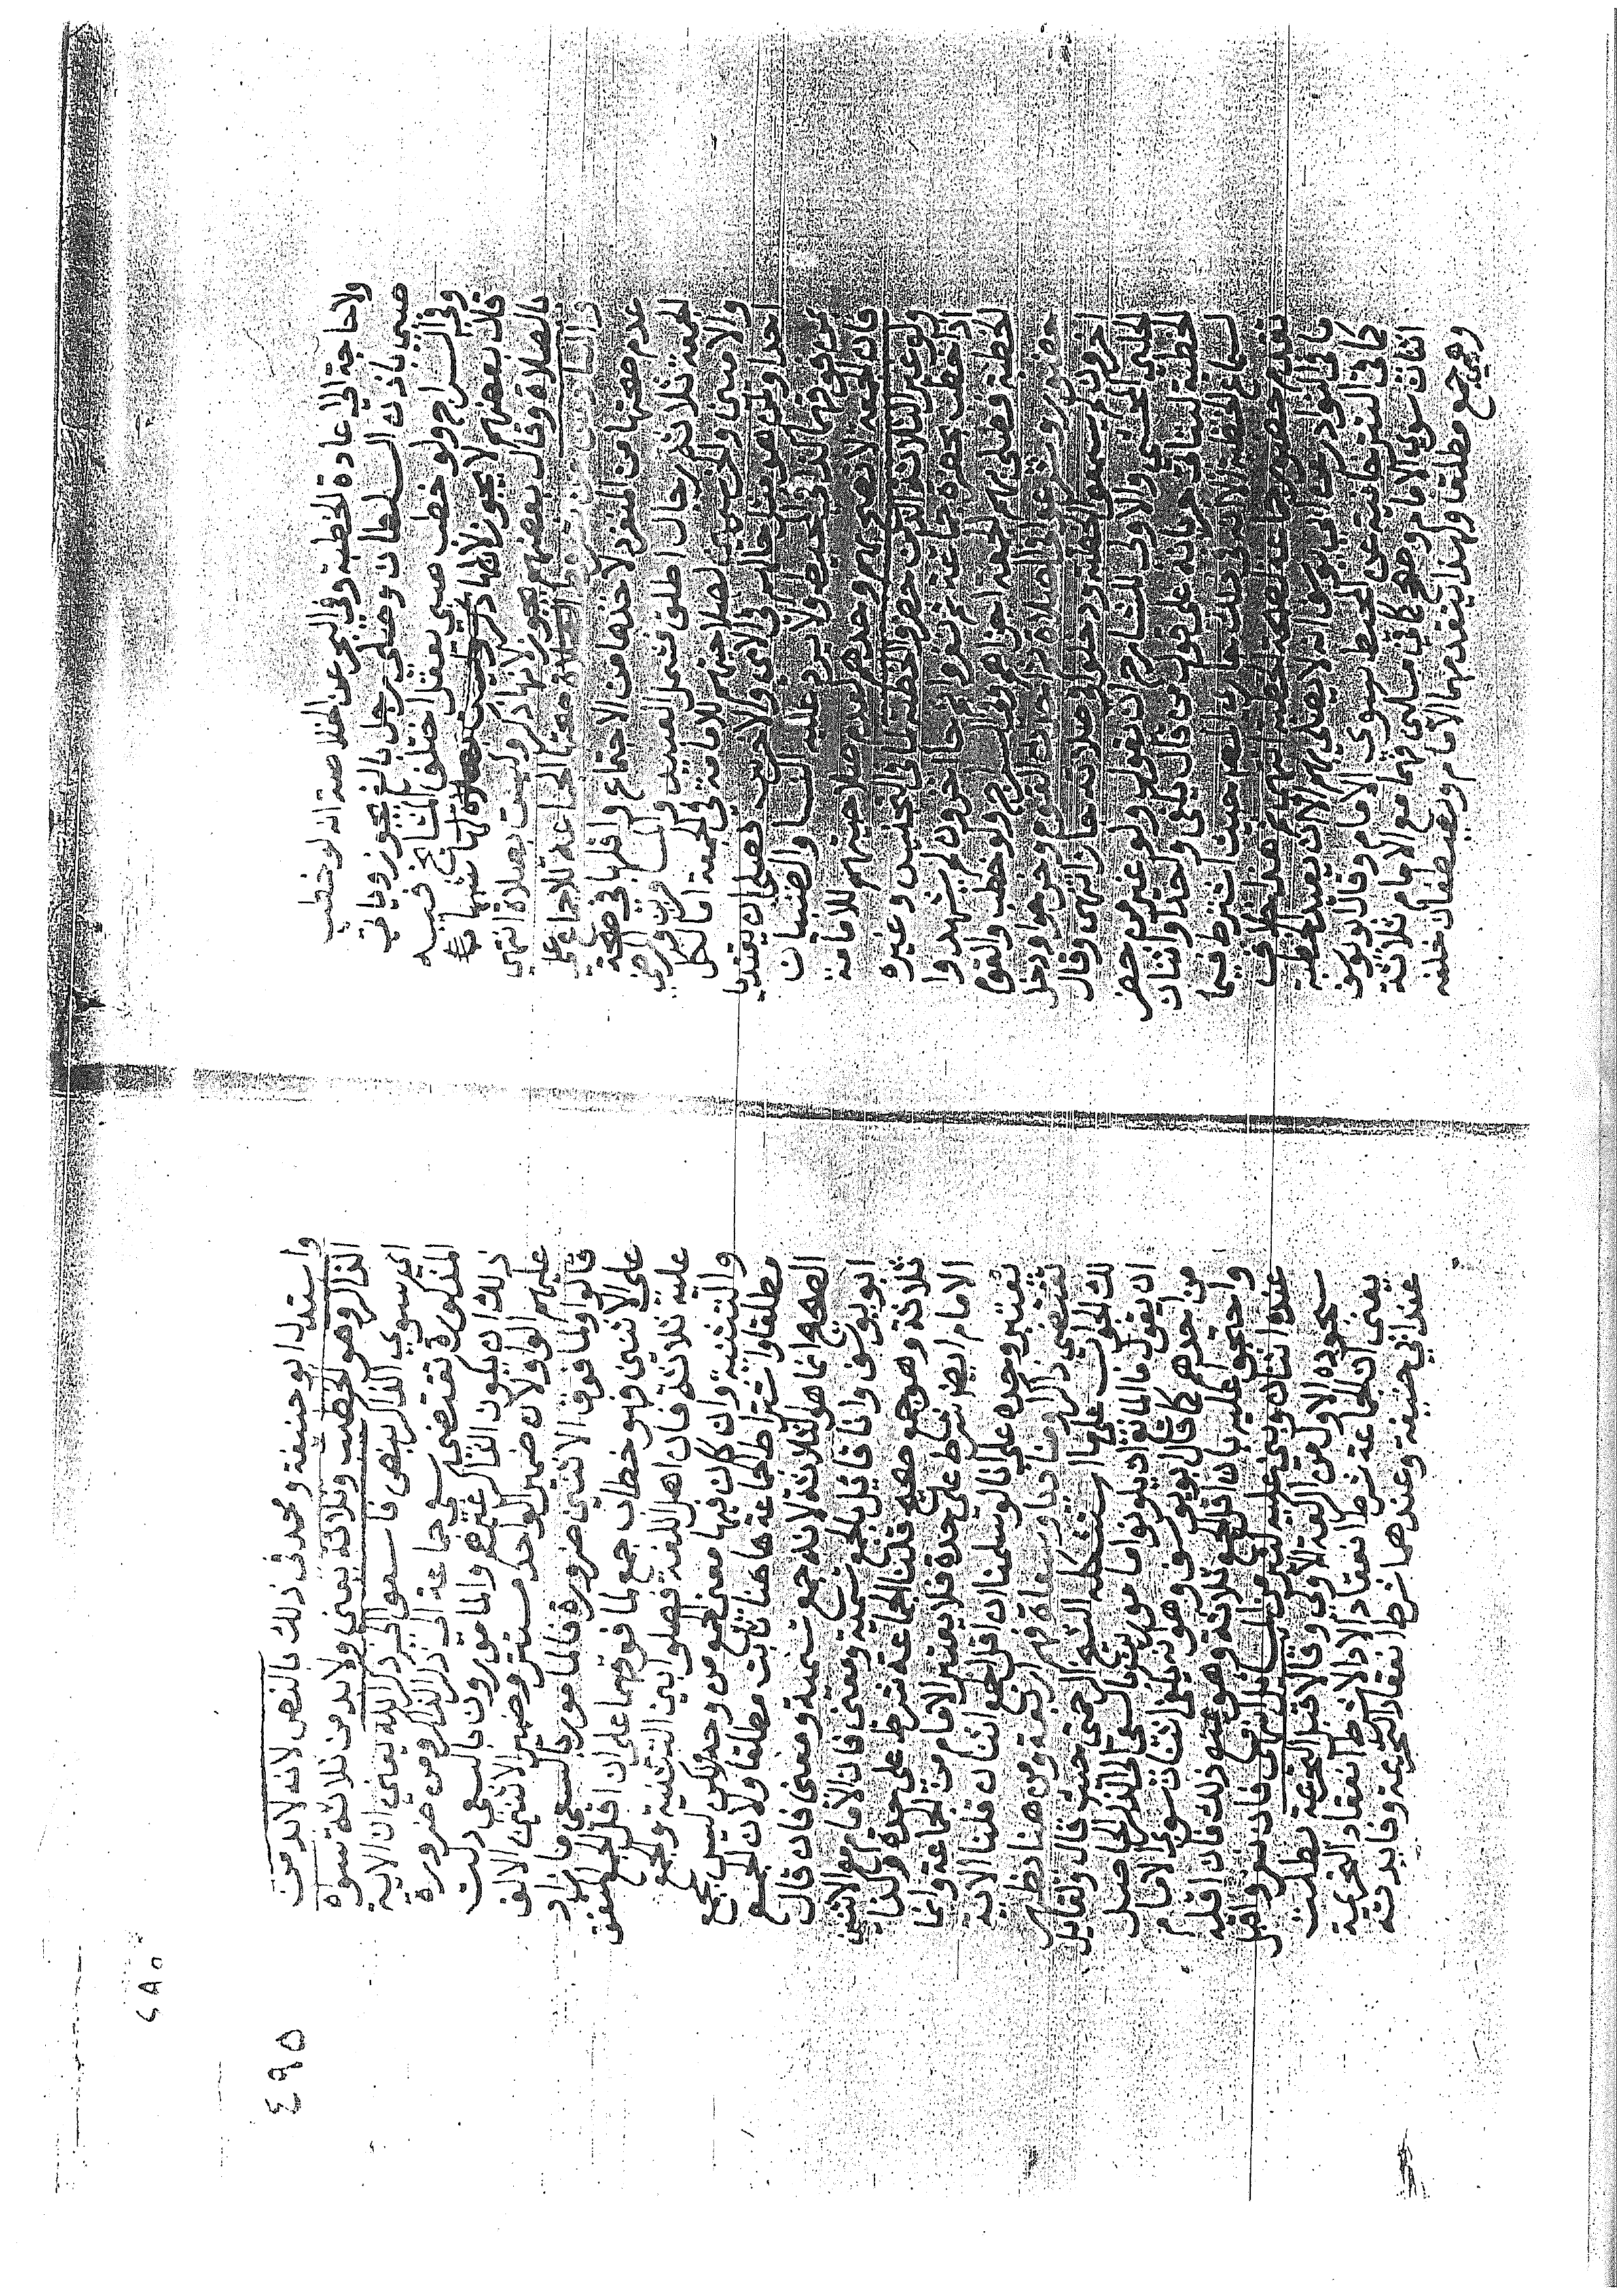 ولا حاجة الي اعادة الخطبة وفي البحر عن الخلاصة انه لو خطب
صبي باذن السلطان وصلي رجل بالغ يجوز وياتي
وفي السراج ولو خطب صبي يعقل اختلف المشايخ فيه
قال بعضهم لا يجوز لانها
بالصلاة وقال بعضهم يجوز لانها ذكر وليست بصلاة انتهي
والسادس من شروط صحتها الجماعة للاجماع علي
عدم صحتها من المنفرد لاخذها من الاجتماع واقلها في صحة
الجمعة ثلاثة رجال اطلق فشمل العبيد والمسافرين والمرضي
والاميين والخرسي لصلاحيتهم للامامة في الجمعة اما لكل
احد او لمن هو مثل حالهم في الامي والاخرس فصلحا ان يقتديا
بمن فوقهما كذا في المحيط ولا يرد عليه النساء والصبيان
فان الجمعة لا تصح بهم وحدهم لعدم صلاحيتهم للامامة
ولو غير الثلاثة الذين حضروا الخطبة لما في التجنيس وغيره
اذا خطب بحضرة جماعة ثم نفروا وجا اخرون لم يشهدوا
الخطبة فصلي بهم الجمعة اجزاهم وفي السراج ولو خطب والقوم
حضور وشرع في الصلاة القوم وخرجوا ودخل
اخرون لم يسمعوا الخطبة ودخلوا في صلاته جاز انتهي وقال
الحلبي والاولي للشارح ان يقول ولو غير من حضر
الخطبة لتنادي عبارته علي قول من قال يكفي واحد او اثنان
لسماع الخطبة
تقدم حضور جماعة لصحة الخطبة انتهي
ما في النوادر عن ابي يوسف انه لا يصلي بهم الا ان يعيد الخطبة
كما في التترخانية عن المحيط سوي الامام وقال ابو يوسف
اثنان سوي الامام وصح كما في مسكين فهما مع الامام ثلاثة
وهي جمع مطلقا ولهذا يتقدمهما الامام ويصطفان خلفه
٤٩٥
واستدل ابو حنيفة ومحمد في ذلك بالنص لانه لا بد من
الذاكر وهو الخطيب وثلاثة يعني ولا بد من ثلاثة سواه
اي سوي الذاكر بنص فاسعوا الي ذكر الله يعني ان الاية
المذكورة تقتضي سعي جماعة الي ذكر الذاكر ومن ضرورة
ذلك ان يكون الذاكر غيرهم والمامورون بالسعي دلت
عليهم الواو لان ضمير الواحد مستتر وضمير الاثنين الالف
قالوا ولما فوق الاثنين ضرورة فالمامور بالسعي ما زاد
علي الاثنين فهو خطاب جمع لما فوقهما علي ان اقل الجمع المتفق
عليه ثلاثة فان اهل اللغة فصلوا بين التثنية والجمع
والتثنية وان كان فيها معني الجمع من وجه لكن ليس بجمع
مطلقا واشتراط الجماعة هاهنا ثابت مطلقا ولان الجمع
الصحيح انما هو الثلاثة لانه جمع تسمية ومعني فان قال
ابو يوسف وانا قائل بالجمع تسمية ومعني فان الامام مع الاثنين
ثلاثة وهو جمع صحيح قلنا الجماعة شرط علي حدة وكذا
الامام ايضا شرط علي حدة فلا يعتبر الامام من الجماعة وانما
يعتبر وحده علي انا لو سلمنا ان اقل الجمع اثنان قلنا الاية
تقتضي ذاكرا ومناديا وسعاة فهم اربعة ومن هنا نظهر
لك الجواب علي ما استشكله الشيخ الرحمتي حيث قال ولقائل
ان يقول ما المانع ان يكونوا مامورين بالسعي الي الذكر الحاصل
من احدهم كما قال ابو يوسف وهو انه يكفي اثنان سوي الامام
واحتجوا عليه بان اقل الجمع ثلاثة وهو عنده ذلك فان اقله
عنده اثنان وبني عليه كثيرا من المسائل انتهي فان نفروا قبل
سجوده الاول من الركعة الاولي وقالا قبل التحريمة بطلت
يعني ان الجماعة شرط انعقاد الاداء لا شرط انعقاد التحريمة
عند ابي حنيفة وعندهما شرط انعقاد التحريمة وفايدته